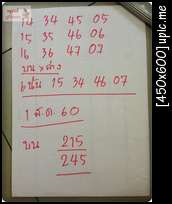 14 34 45 05
15 35 46 06
16 36 47 07
บน x ล่าง
เน้น 15 34 46 07
1 ส.ค. 60
บน 215
245
[450x600] upic.me